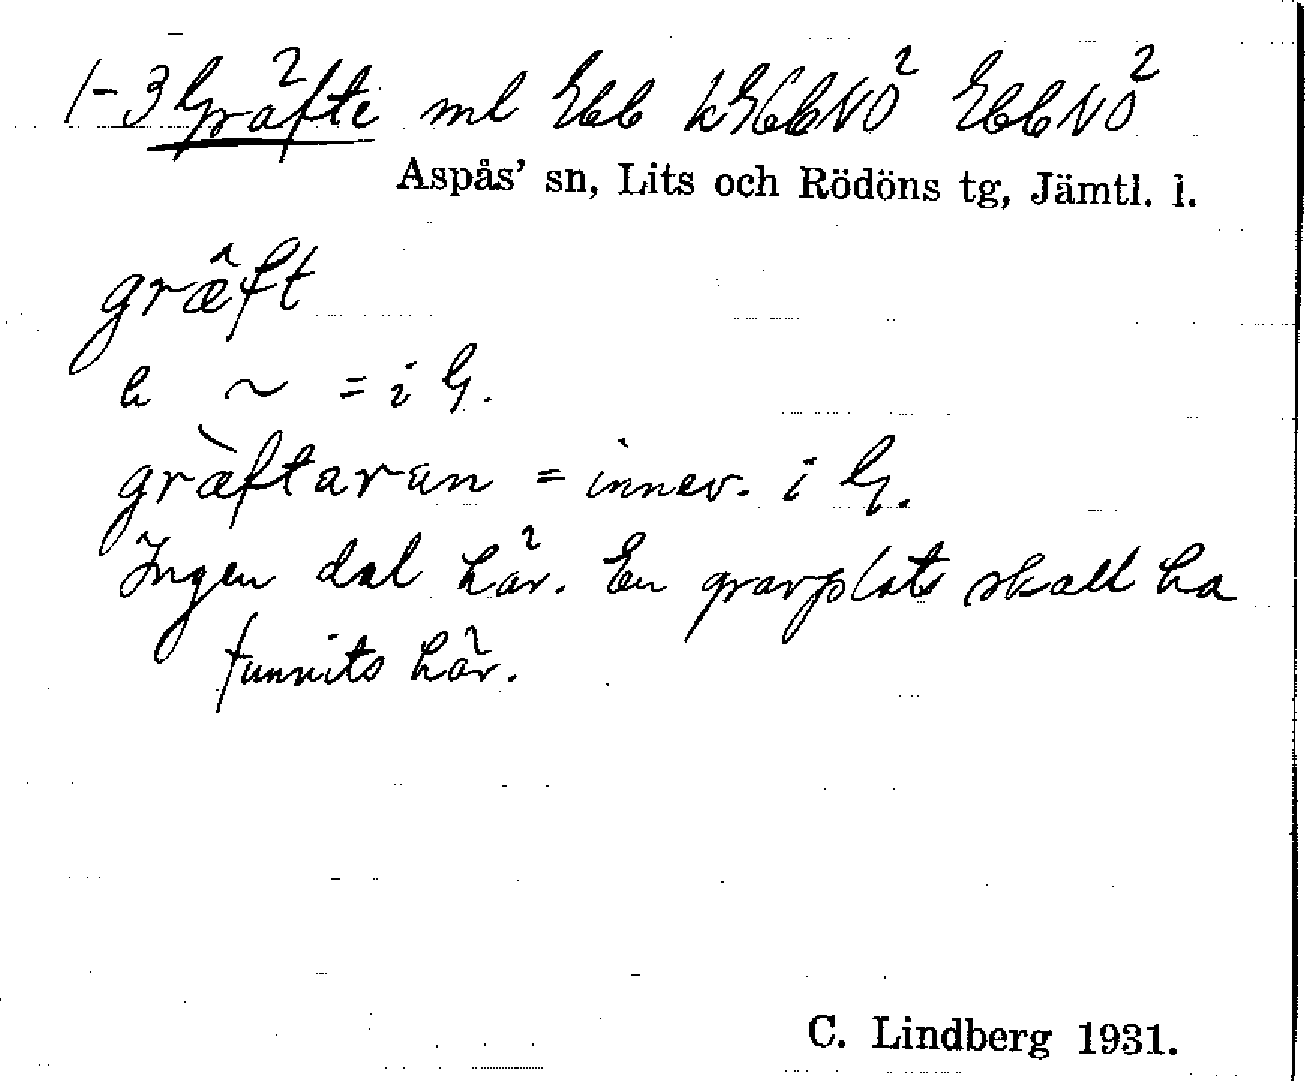 1-3 Gräfte ml Ebb kGEbbNO EbbNO
Aspås' sn, Lits och Rödöns tg, Jämtl. l.
græ̂ft
a ~ = i G.
græ̀ftaran = innev. i G.
Ingen dal här. En gravplats skall ha
funnits här.
C. Lindberg 1931.